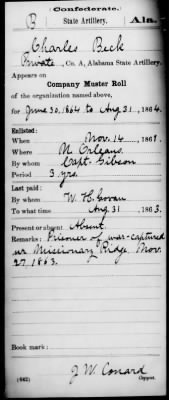 Confederate.
B State Artillery. Ala.
Charles Beck
Private, Co. A, Alabama State Artillery.
Appears on
Company Muster Roll
of the organization named above,
for June 30, 1864 to Aug 31, 1864.
Enlisted:
When Nov. 14, 1861.
Where N. Orleans.
By whom Capt. Gibson
Period 3 yrs.
Last paid:
By whom W. H. Govan
To what time Aug 31, 1863.
Present or absent Absent.
Remarks: Prisoner of war-captured
nr Missionary Ridge, Nov.
27, 1863.
Book mark:
J. W. Conard
(642) Copyist.